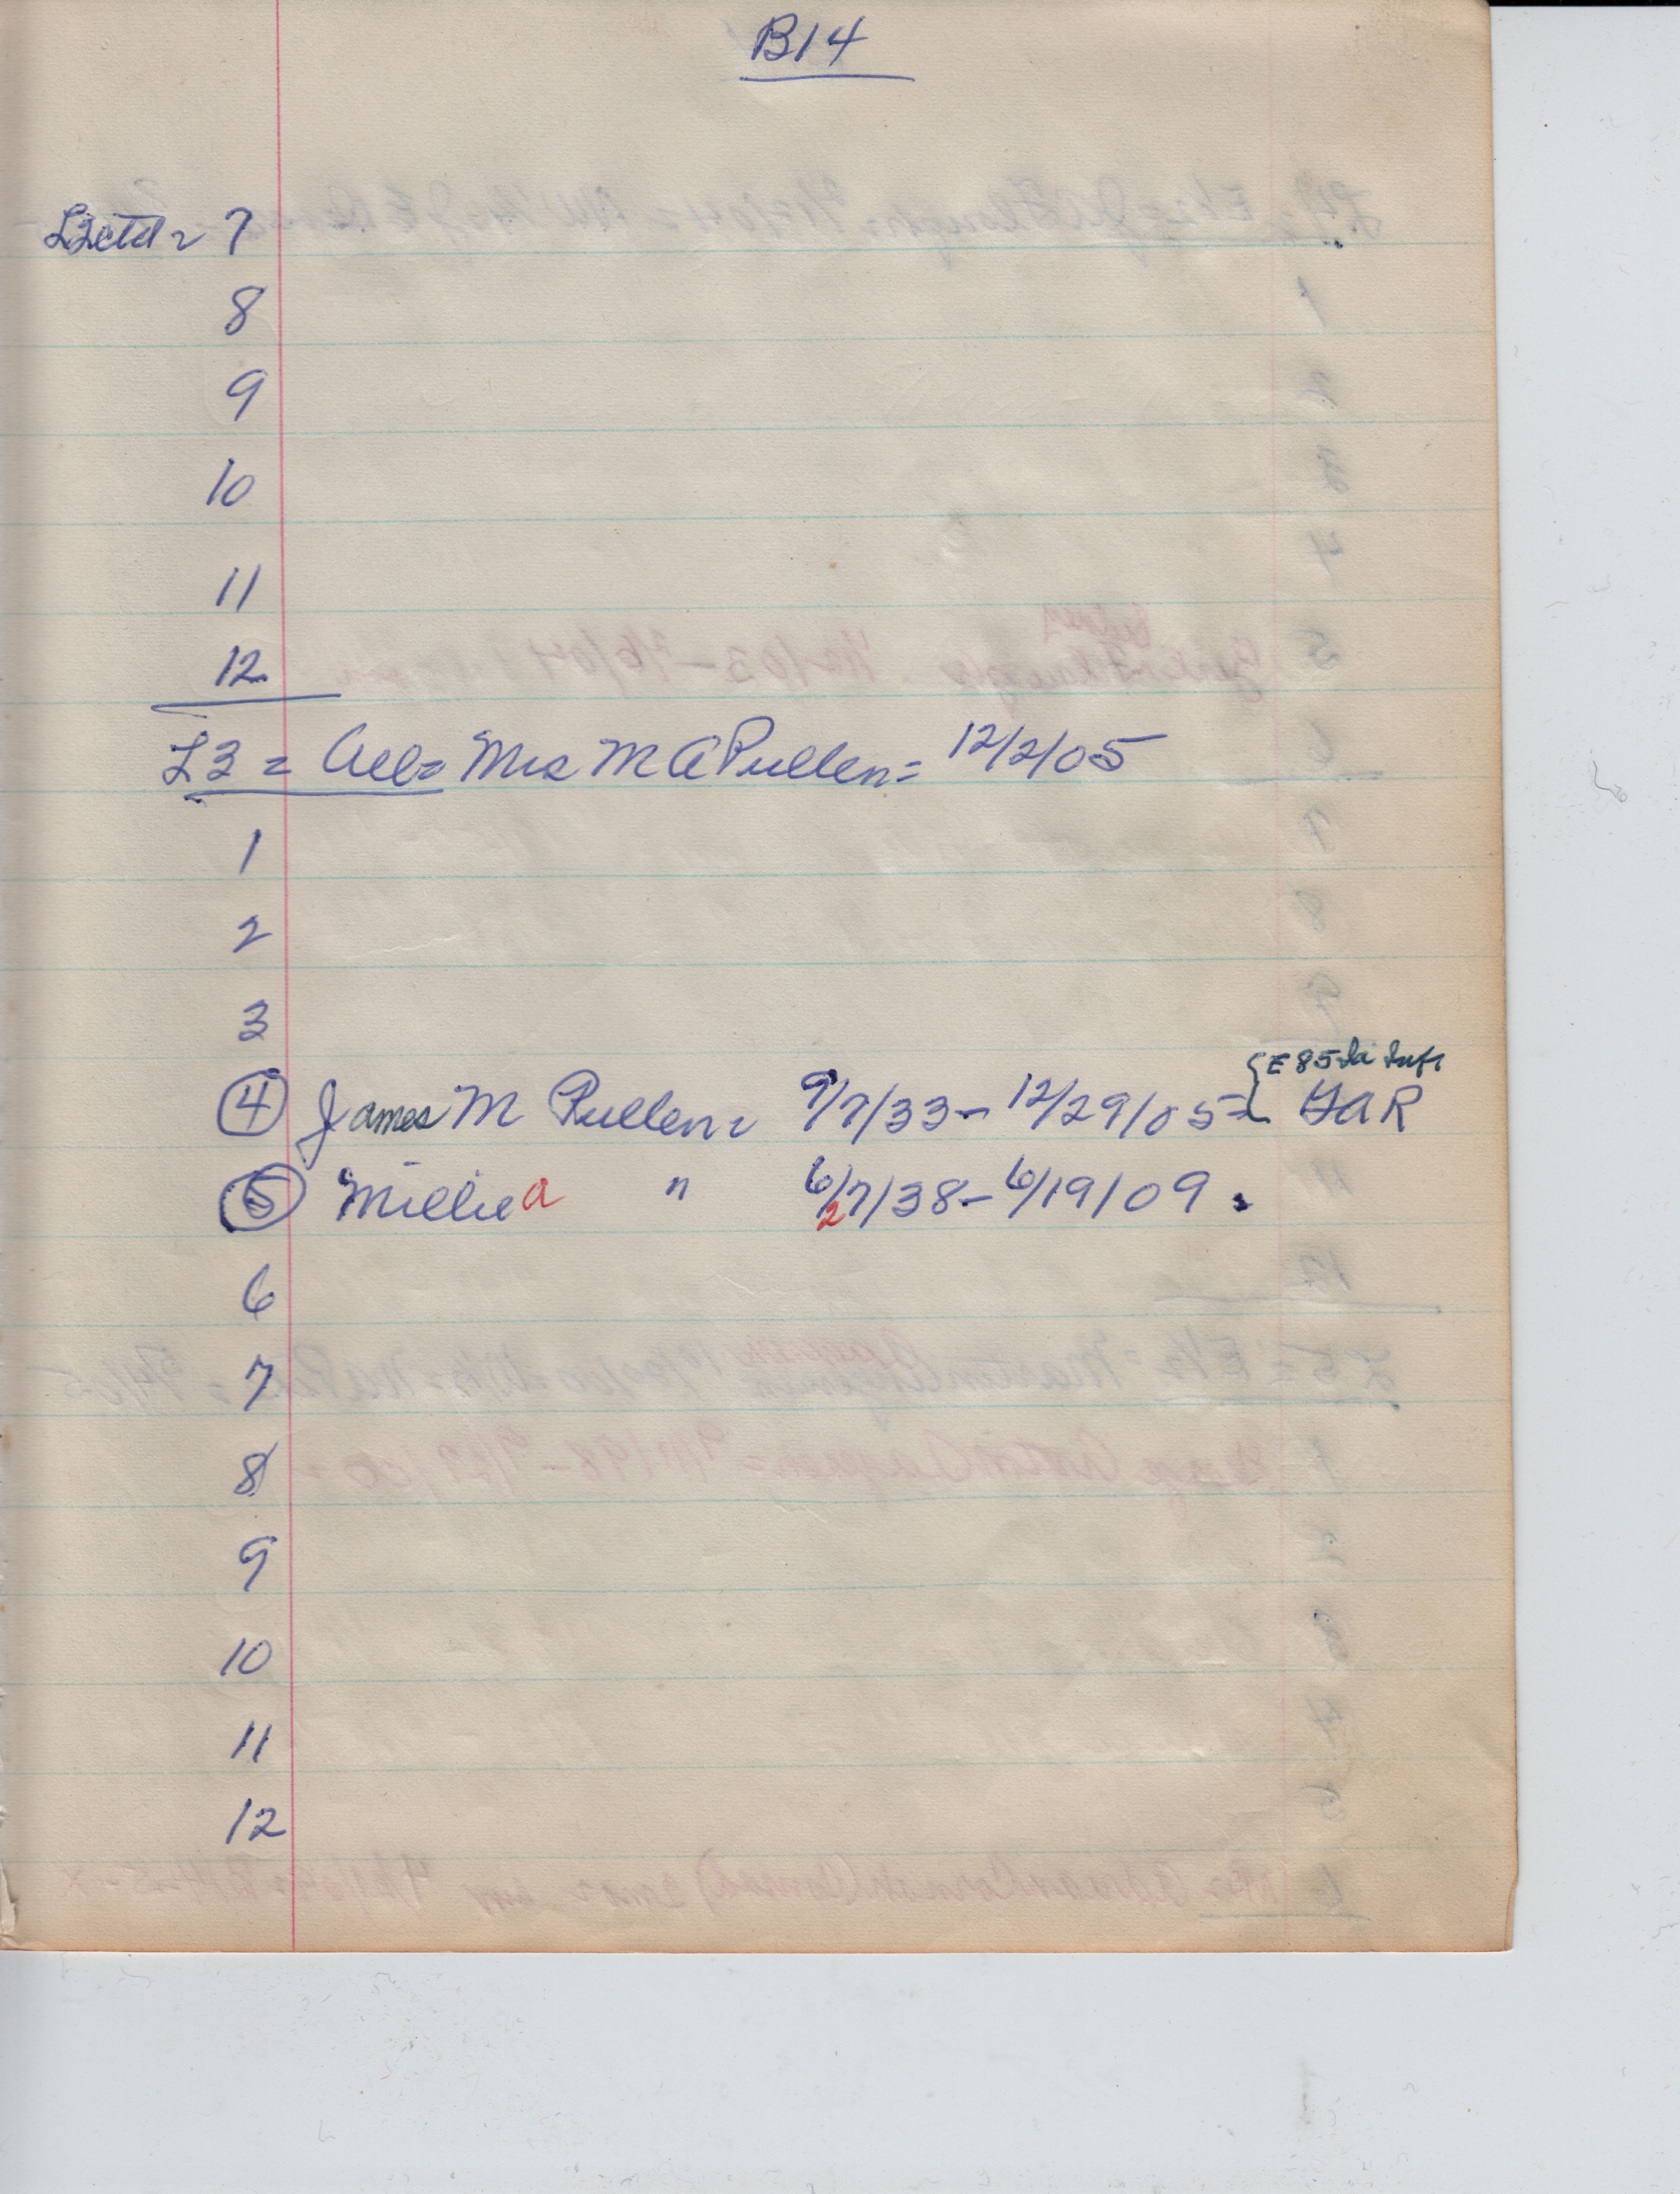 B14
L2ctd = 7
8
9
10
11
12
L3 = All = Mrs M A Pullen = 12/2/05
1
2
3
{ E 85 Ia Inft
4 James M Pullen = 9/7/33 - 12/29/05 = GAR
5 Millie a " 6/27/38 - 6/19/09 .
6
7
8
9
10
11
12